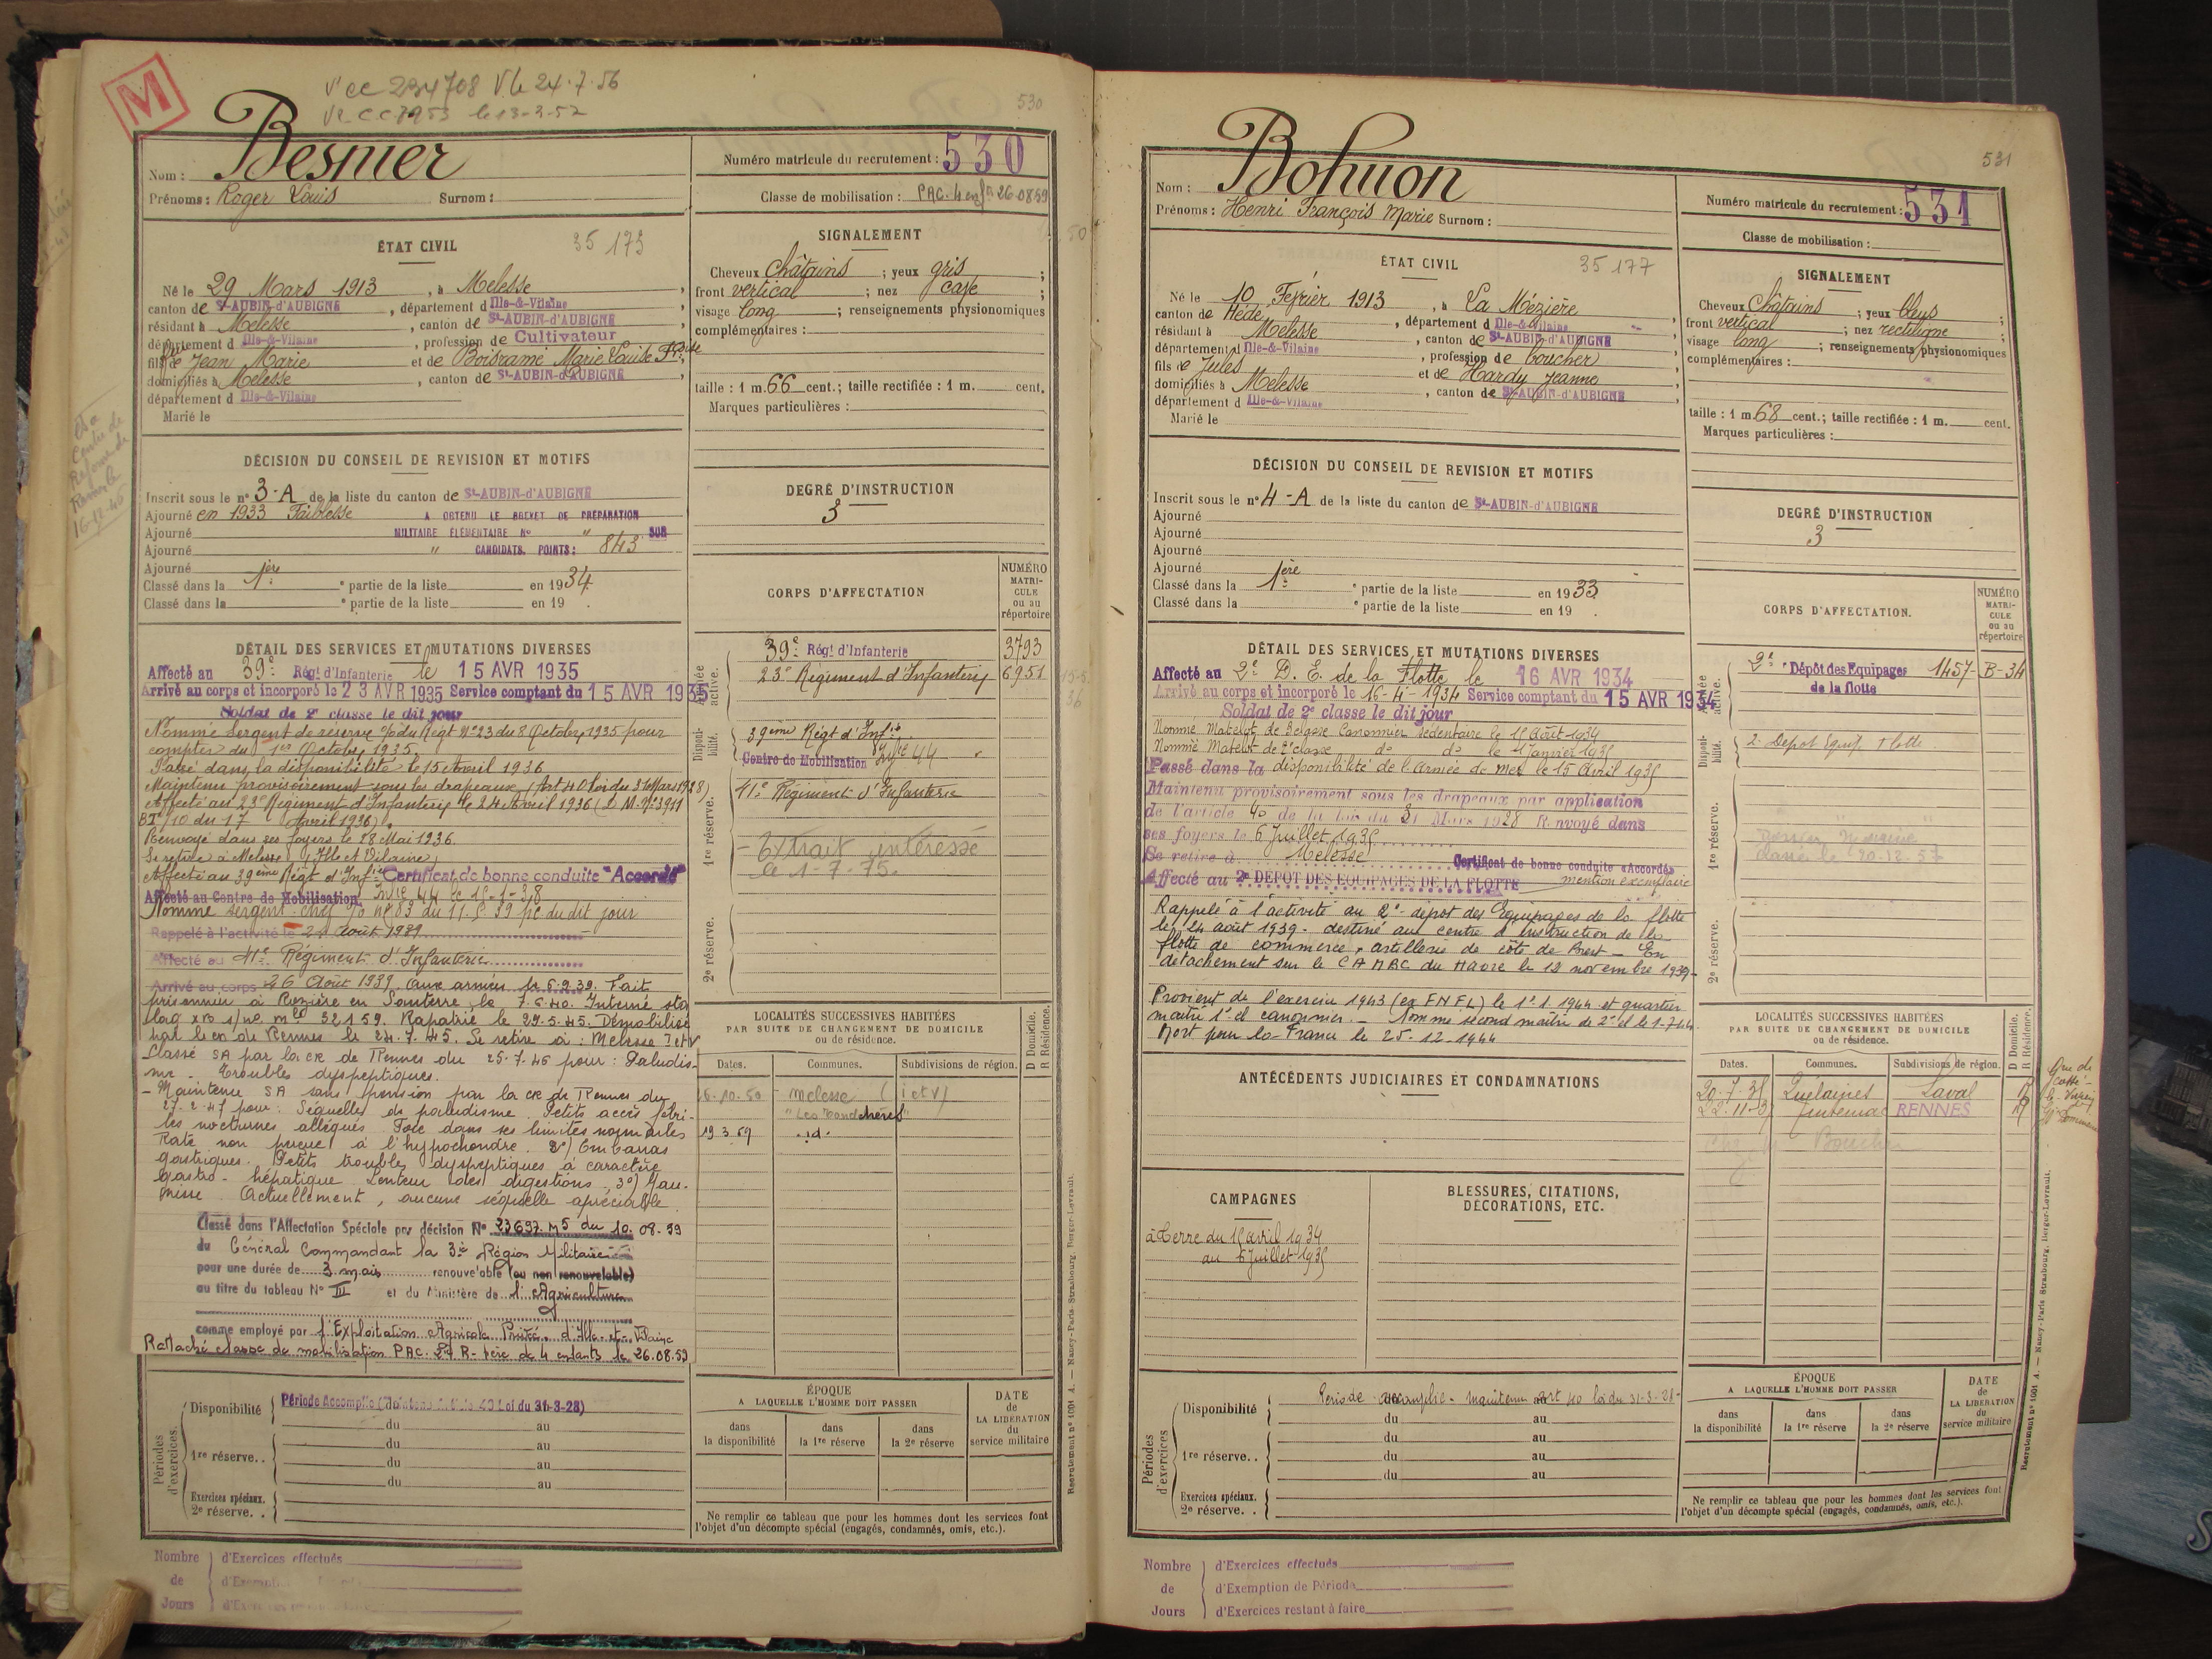 M
V' CC 234708 V le 24.7.56
Vr CC 7953 le 13-3-57
530
Nom : Besnier
Prénoms : Roger Louis Surnom :
Numéro matricule du recrutement : 530
Classe de mobilisation : PAC. 4 enfts 26.08.59
ÉTAT CIVIL
35 173
Né le 29 Mars 1913, à Melesse,
canton de St-AUBIN-d'AUBIGNÉ, département d Ille-&-Vilaine
résidant à Melesse, canton de St-AUBIN-d'AUBIGNE
département d Ille-&-Vilaine, profession de Cultivateur
fils de feu Jean Marie et de Boisrame Marie Louise Fçoise
domiciliés à Melesse, canton de St-AUBIN-d'AUBIGNE
département d Ille-&-Vilaine
Marié le
SIGNALEMENT
Cheveux châtains ; yeux gris ;
front vertical ; nez cave ;
visage long ; renseignements physionomiques
complémentaires :
taille : 1 m. 66 cent.; taille rectifiée : 1 m. cent.
Marques particulières :
Centre de
Réforme de
Rennes le
16-12-46
DÉCISION DU CONSEIL DE REVISION ET MOTIFS
Inscrit sous le n° 3-A de la liste du canton de St-AUBIN-d'AUBIGNE
Ajourné en 1933 Faiblesse A OBTENU LE BREVET DE PRÉPARATION
Ajourné MILITAIRE ELEMENTAIRE No " SUR
Ajourné " CANDIDATS. POINTS: 843
Ajourné
Classé dans la 1ère e partie de la liste en 1934.
Classé dans la e partie de la liste en 19 .
DEGRÉ D'INSTRUCTION
3
CORPS D'AFFECTATION
NUMÉRO MATRICULE ou au répertoire
Armée active.
39e Régt d'Infanterie 3793
23e Régiment d'Infanterie 6951
Disponibilité.
39ème Régt d'Infie
Centre de Mobilisation Infie 44
1re réserve.
41e Régiment d'Infanterie
- Extrait intéressé
le 1-7-75.
2e réserve.
DÉTAIL DES SERVICES ET MUTATIONS DIVERSES
Affecté au 39e Régt d'Infanterie le 15 AVR 1935
Arrivé au corps et incorporé le 23 AVR 1935 Service comptant du 15 AVR 1935
Soldat de 2e classe le dit jour
Nommé Sergent de réserve o/o du Régt No 23 du 8 Octobre 1935 pour
compter du 1er Octobre 1935.
Passé dans la disponibilité le 15 Avril 1936
Maintenu provisoirement sous les drapeaux (Art 40 loi du 31 Mars 1928)
Affecté au 23e Régiment d'Infanterie le 24 Avril 1936 (D.M. No 3911
BT/10 du 17 Avril 1936).
Renvoyé dans ses foyers le 28 Mai 1936.
Se retire à Melesse (Ille et Vilaine)
Affecté au 39ème Régt d'Infie Certificat de bonne conduite "Accordé"
Affecté au Centre de Mobilisation Infie 44 le 15-1-38
Nommé sergent-chef o/o no 83 du 11.5.39 pc du dit jour
Rappelé à l'activité le 24 Août 1939
Affecté au 41e Régiment d'Infanterie
Arrivé au corps 26 Août 1939. Aux armées le 5.9.39. Fait
prisonnier à Rozière en Santerre le 7.6.40. Interné sta
lag s/no mle 52159. Rapatrié le 29.5.45. Démobilisé
par le cn de Rennes le 24.7.45. Se retire à : Melesse I et V
Classé SA par la CR de Rennes du 25-7-46 pour : Paludis-
me - Troubles dyspeptiques.
- Maintenu SA sans pension par la CR de Rennes du
27-2-47 pour : Séquelles de paludisme. Petits accès fébri-
les nocturnes allégués. Foie dans ses limites normales
Rate non perçue à l'hypochondre. 2°) Embarras
gastriques. Petits troubles dyspeptiques à caractère
gastro-hépatique. Lenteur des digestions. 3°) Jau-
nisse. Actuellement, aucune séquelle apréciable.
Classé dans l'Affectation Spéciale par décision No 23697.M5 du 10.08.59
du Général Commandant la 3e Région Militaire
pour une durée de 3 mois renouvelable (ou non renouvelable)
au titre du tableau No III et du Ministère de l'Agriculture
comme employé par l'Exploitation Agricole Privée. d'Ille-et-Vilaine
Rattaché classe de mobilisation PAC. 2e R- Père de 4 enfants le 26.08.59
LOCALITÉS SUCCESSIVES HABITÉES
PAR SUITE DE CHANGEMENT DE DOMICILE
ou de résidence.
D Domicile. R Résidence.
Dates. Communes. Subdivisions de région.
26.10.50 - Melesse (I et V)
"Les Landchères"
19 3 69 .id.
Périodes d'exercices.
Disponibilité Période Accomplie (Maintenu Article 40 Loi du 31-3-28)
du au
1re réserve. . du au
du au
du au
Exercices spéciaux.
2e réserve. .
ÉPOQUE
A LAQUELLE L'HOMME DOIT PASSER
dans la disponibilité
dans la 1re réserve
dans la 2e réserve
DATE de LA LIBÉRATION du service militaire
Ne remplir ce tableau que pour les hommes dont les services font
l'objet d'un décompte spécial (engagés, condamnés, omis, etc.).
Recrutement n° 1001 A. — Nancy-Paris-Strasbourg, Berger-Levrault.
Nombre de Jours
d'Exercices effectués
531
Nom : Bohuon
Prénoms : Henri François Marie Surnom :
Numéro matricule du recrutement : 531
Classe de mobilisation :
ÉTAT CIVIL
35 177
Né le 10 Février 1913, à La Mézière,
canton de Hédé, département d Ille-&-Vilaine
résidant à Melesse, canton de St-AUBIN-d'AUBIGNE
département d Ille-&-Vilaine, profession de boucher
fils de Jules et de Hardy Jeanne
domiciliés à Melesse, canton de St-AUBIN-d'AUBIGNE
département d Ille-&-Vilaine
Marié le
SIGNALEMENT
Cheveux Châtains ; yeux bleus ;
front vertical ; nez rectiligne ;
visage long ; renseignements physionomiques
complémentaires :
taille : 1 m. 68 cent.; taille rectifiée : 1 m. cent.
Marques particulières :
DÉCISION DU CONSEIL DE REVISION ET MOTIFS
Inscrit sous le n° 4-A de la liste du canton de St-AUBIN-d'AUBIGNE
Ajourné
Ajourné
Ajourné
Ajourné
Classé dans la 1ère e partie de la liste en 1933
Classé dans la e partie de la liste en 19 .
DEGRÉ D'INSTRUCTION
3
CORPS D'AFFECTATION.
NUMÉRO MATRICULE ou au répertoire
Armée active.
2e Dépôt des Equipages 1457-B-34
de la flotte
Disponibilité.
2e Dépôt Equip. Flotte
1re réserve.
classé le 20.12.57
2e réserve.
DÉTAIL DES SERVICES ET MUTATIONS DIVERSES
Affecté au 2e D. E. de la Flotte le 16 AVR 1934
Arrivé au corps et incorporé le 16-4-1934 Service comptant du 15 AVR 1934
Soldat de 2e classe le dit jour
Nommé Matelot de 3e classe Canonnier Sédentaire le 1er Août 1934
Nommé Matelot de 2e classe do do le 1 Janvier 1935
Passé dans la disponibilité de l'Armée de mer le 15 Avril 1935
Maintenu provisoirement sous les drapeaux par application
de l'article 40 de la loi du 31 Mars 1928 Renvoyé dans
ses foyers le 6 Juillet 1935
Se retire à Melesse Certificat de bonne conduite «Accordé»
Affecté au 2e DEPOT DES EQUIPAGES DE LA FLOTTE mention exemplaire
Rappelé à l'activité au 2e dépôt des Equipages de la flotte
le 24 août 1939 - destiné au centre d'instruction de la
flotte de commerce, artillerie de côte de Brest - En
détachement sur le CAMBC du Havre le 12 novembre 1939-
Provient de l'exercice 1943 (ex FNFL) le 1.1.1944 et quartier
maître 1e cl canonnier. - Nommé second maître de 2e cl le 1-7-44.
Mort pour la France le 25-12-1944
ANTÉCÉDENTS JUDICIAIRES ET CONDAMNATIONS
CAMPAGNES
à Terre du 15 avril 1934
au 6 juillet 1935
BLESSURES, CITATIONS,
DÉCORATIONS, ETC.
LOCALITÉS SUCCESSIVES HABITÉES
PAR SUITE DE CHANGEMENT DE DOMICILE
ou de résidence.
D Domicile. R Résidence.
Dates. Communes. Subdivisions de région.
20-7-35 Quelaines Laval R
22-11-37 Tinténiac RENNES R
Chez Mr Boucher
Périodes d'exercices
Disponibilité Période accomplie - maintenu art 40 loi du 31-3-28-
du au
1re réserve. . du au
du au
du au
Exercices spéciaux.
2e réserve. .
ÉPOQUE
A LAQUELLE L'HOMME DOIT PASSER
dans la disponibilité
dans la 1re réserve
dans la 2e réserve
DATE de LA LIBÉRATION du service militaire
Ne remplir ce tableau que pour les hommes dont les services font
l'objet d'un décompte spécial (engagés, condamnés, omis, etc.).
Recrutement n° 1001 A. — Nancy-Paris-Strasbourg, Berger-Levrault.
Nombre de Jours
d'Exercices effectués
d'Exemption de Période
d'Exercices restant à faire